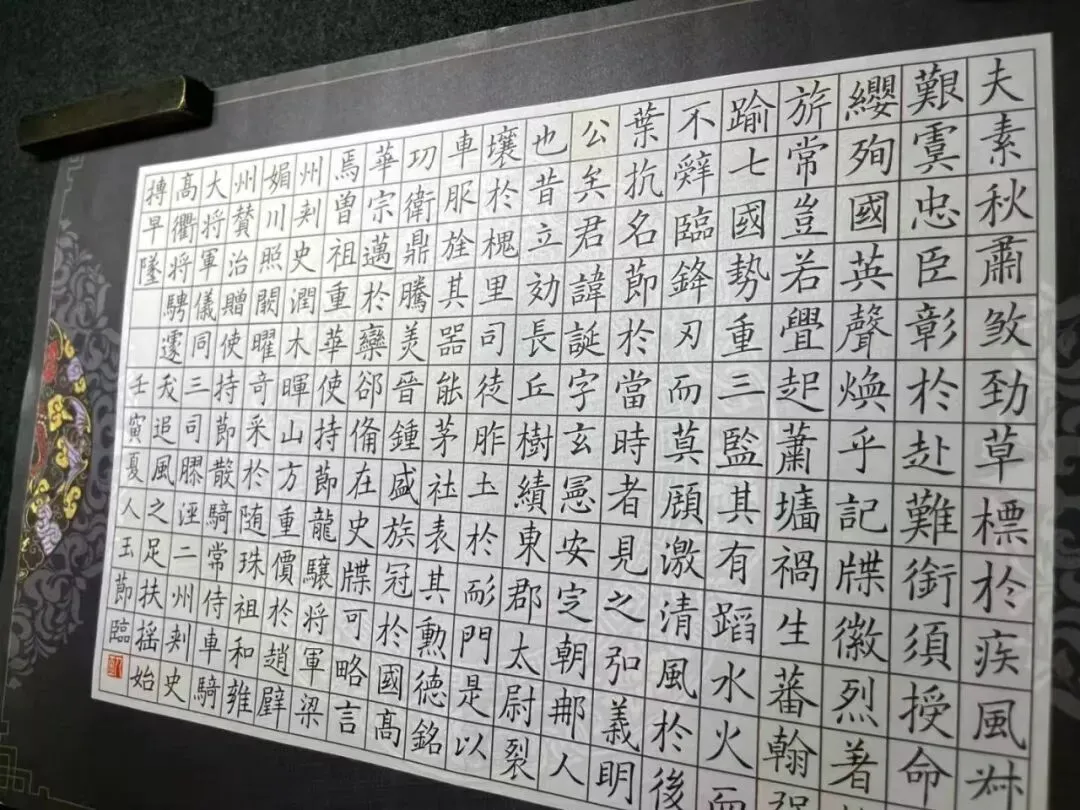 夫素秋肅煞勁草標於疾風
艱虞忠臣彰於赴難銜須授命
纓殉國英聲煥乎記牒徽烈著
旂常豈若釁起蕭墻禍生蕃翰
踰七國勢重三監其有蹈水火而
不辭臨鋒刃而莫顧激清風於後
葉抗名節於當時者見之弘義明
公矣君諱誕字玄憲安定朝那人
也昔立効長丘樹績東郡太尉裂
壤於槐里司徒胙土於耏門是以
車服旌其器能茅社表其勳德銘
功衛鼎騰美晉鍾盛族冠於國高
華宗邁於欒郤備在史牒可略言
焉曾祖重華使持節龍驤將軍梁
州刺史潤木暉山方重價於趙璧
媚川照闕曜奇采於随珠祖和雍
州贊治贈使持節散騎常侍車騎
大將軍儀同三司膠涇二州刺史
高衢將騁遽戢追風之足扶搖始
摶早墜 壬寅夏人玉節臨